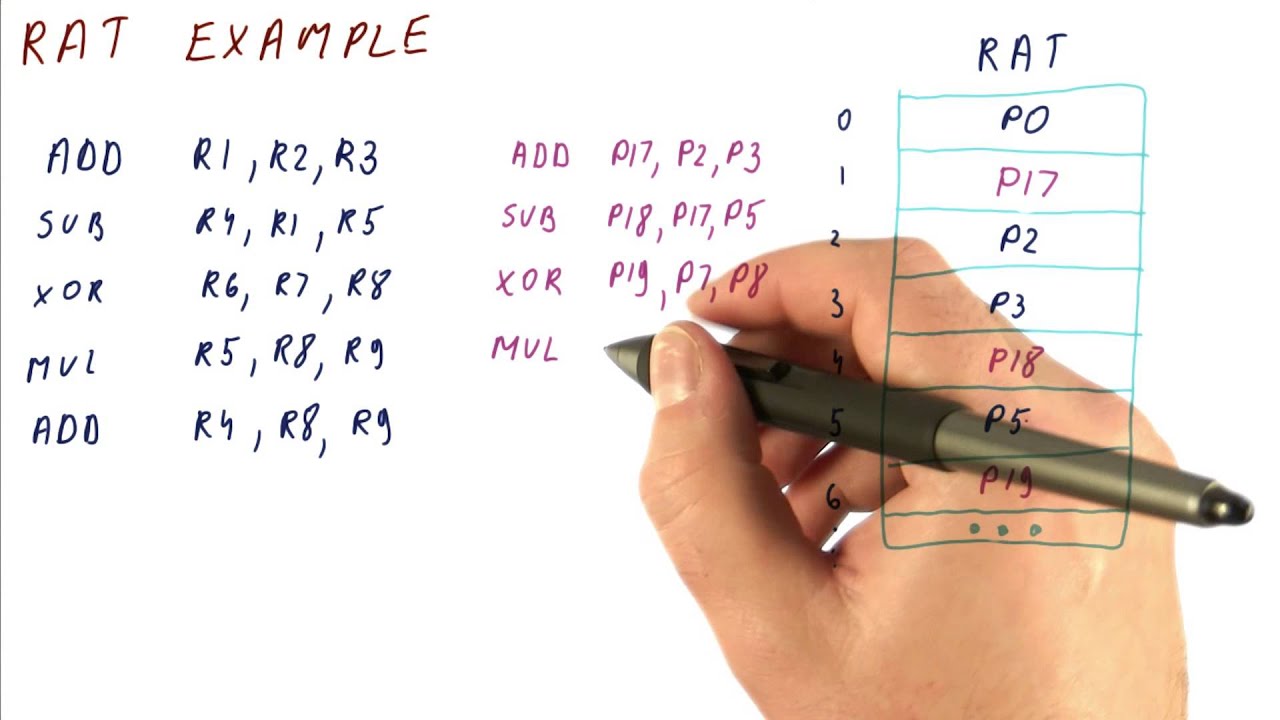 RAT EXAMPLE
ADD R1, R2, R3
SUB R4, R1, R5
XOR R6, R7, R8
MUL R5, R8, R9
ADD R4, R8, R9
ADD P17, P2, P3
SUB P18, P17, P5
XOR P19, P7, P8
MUL
RAT
0 P0
1 P17
2 P2
3 P3
4 P18
5 P5
6 P19
: • • •